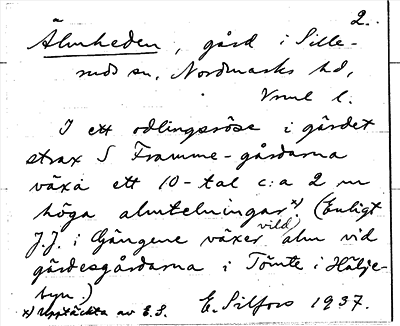 2.
Älmheden, gård i Sille-
ruds sn, Nordmarks hd,
Vrml l.
I ett odlingsröse i gärdet
strax S Framme-gårdarna
växa ett 10-tal c:a 2 m
höga almtelningar x) (Enligt
J.J. i Gängene växer vild alm vid
gärdesgårdarna i Tömte i Hölje-
byn)
x) Upptäckta av E.S. E. Silfors 1937.